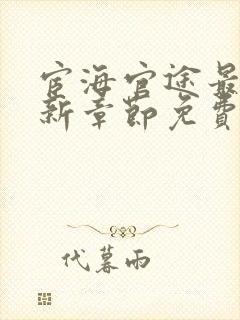 宦海官途最
新章节免费
代暮雨